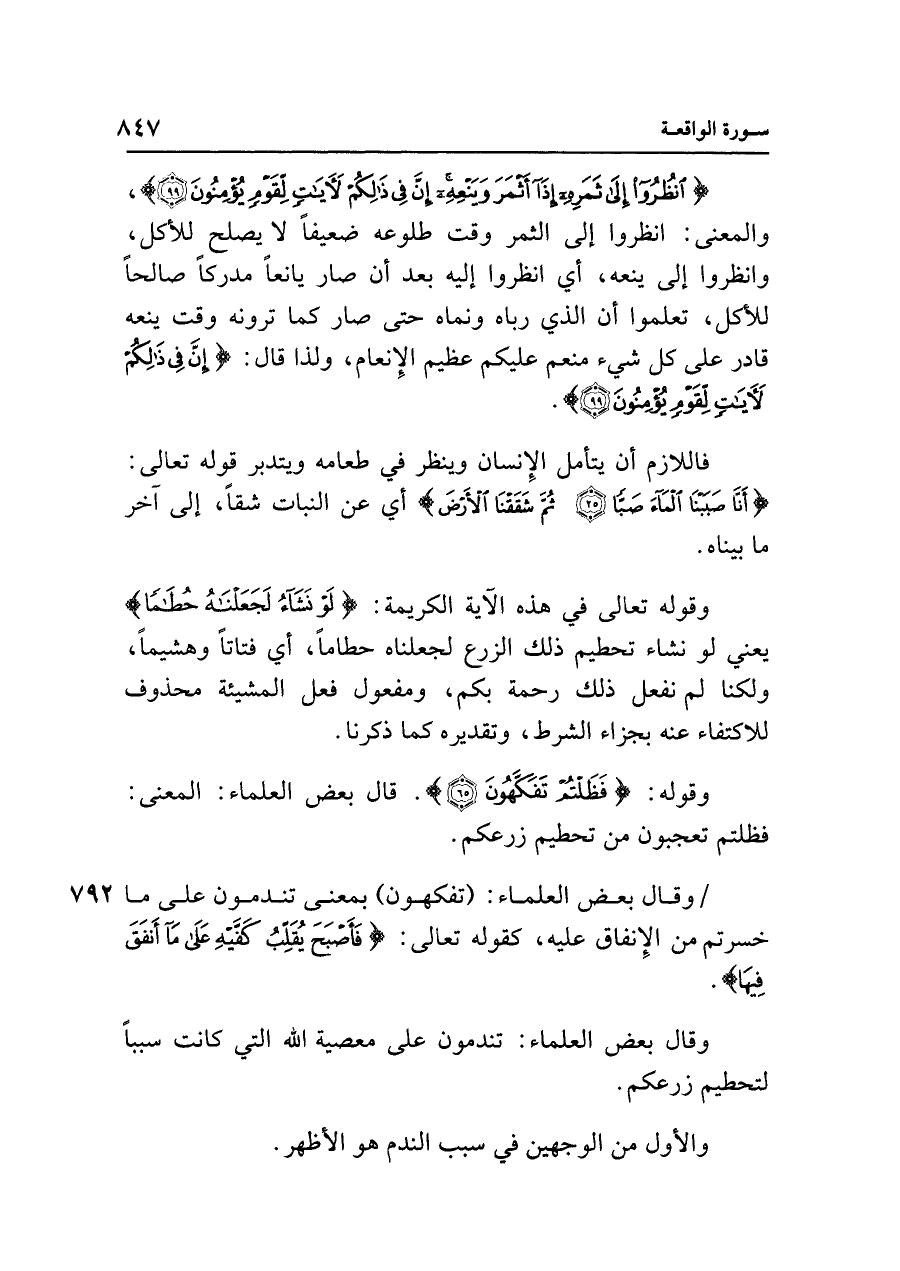 سورة الواقعة ٨٤٧
﴿ ٱنظُرُوٓا۟ إِلَىٰ ثَمَرِهِۦٓ إِذَآ أَثْمَرَ وَيَنْعِهِۦٓ ۚ إِنَّ فِى ذَٰلِكُمْ لَـَٔايَـٰتٍ لِّقَوْمٍ يُؤْمِنُونَ ٩٩ ﴾،
والمعنى: انظروا إلى الثمر وقت طلوعه ضعيفاً لا يصلح للأكل،
وانظروا إلى ينعه، أي انظروا إليه بعد أن صار يانعاً مدركاً صالحاً
للأكل، تعلموا أن الذي رباه ونماه حتى صار كما ترونه وقت ينعه
قادر على كل شيء منعم عليكم عظيم الإِنعام، ولذا قال: ﴿ إِنَّ فِى ذَٰلِكُمْ
لَـَٔايَـٰتٍ لِّقَوْمٍ يُؤْمِنُونَ ٩٩ ﴾.
فاللازم أن يتأمل الإِنسان وينظر في طعامه ويتدبر قوله تعالى:
﴿ أَنَّا صَبَبْنَا ٱلْمَآءَ صَبًّا ٢٥ ثُمَّ شَقَقْنَا ٱلْأَرْضَ ﴾ أي عن النبات شقاً، إلى آخر
ما بيناه.
وقوله تعالى في هذه الآية الكريمة: ﴿ لَوْ نَشَآءُ لَجَعَلْنَـٰهُ حُطَـٰمًا ﴾
يعني لو نشاء تحطيم ذلك الزرع لجعلناه حطاماً، أي فتاتاً وهشيماً،
ولكنا لم نفعل ذلك رحمة بكم، ومفعول فعل المشيئة محذوف
للاكتفاء عنه بجزاء الشرط، وتقديره كما ذكرنا.
وقوله: ﴿ فَظَلْتُمْ تَفَكَّهُونَ ٦٥ ﴾. قال بعض العلماء: المعنى:
فظلتم تعجبون من تحطيم زرعكم.
/ وقال بعض العلماء: (تفكهون) بمعنى تندمون على ما ٧٩٢
خسرتم من الإِنفاق عليه، كقوله تعالى: ﴿ فَأَصْبَحَ يُقَلِّبُ كَفَّيْهِ عَلَىٰ مَآ أَنفَقَ
فِيهَا ﴾.
وقال بعض العلماء: تندمون على معصية الله التي كانت سبباً
لتحطيم زرعكم.
والأول من الوجهين في سبب الندم هو الأظهر.